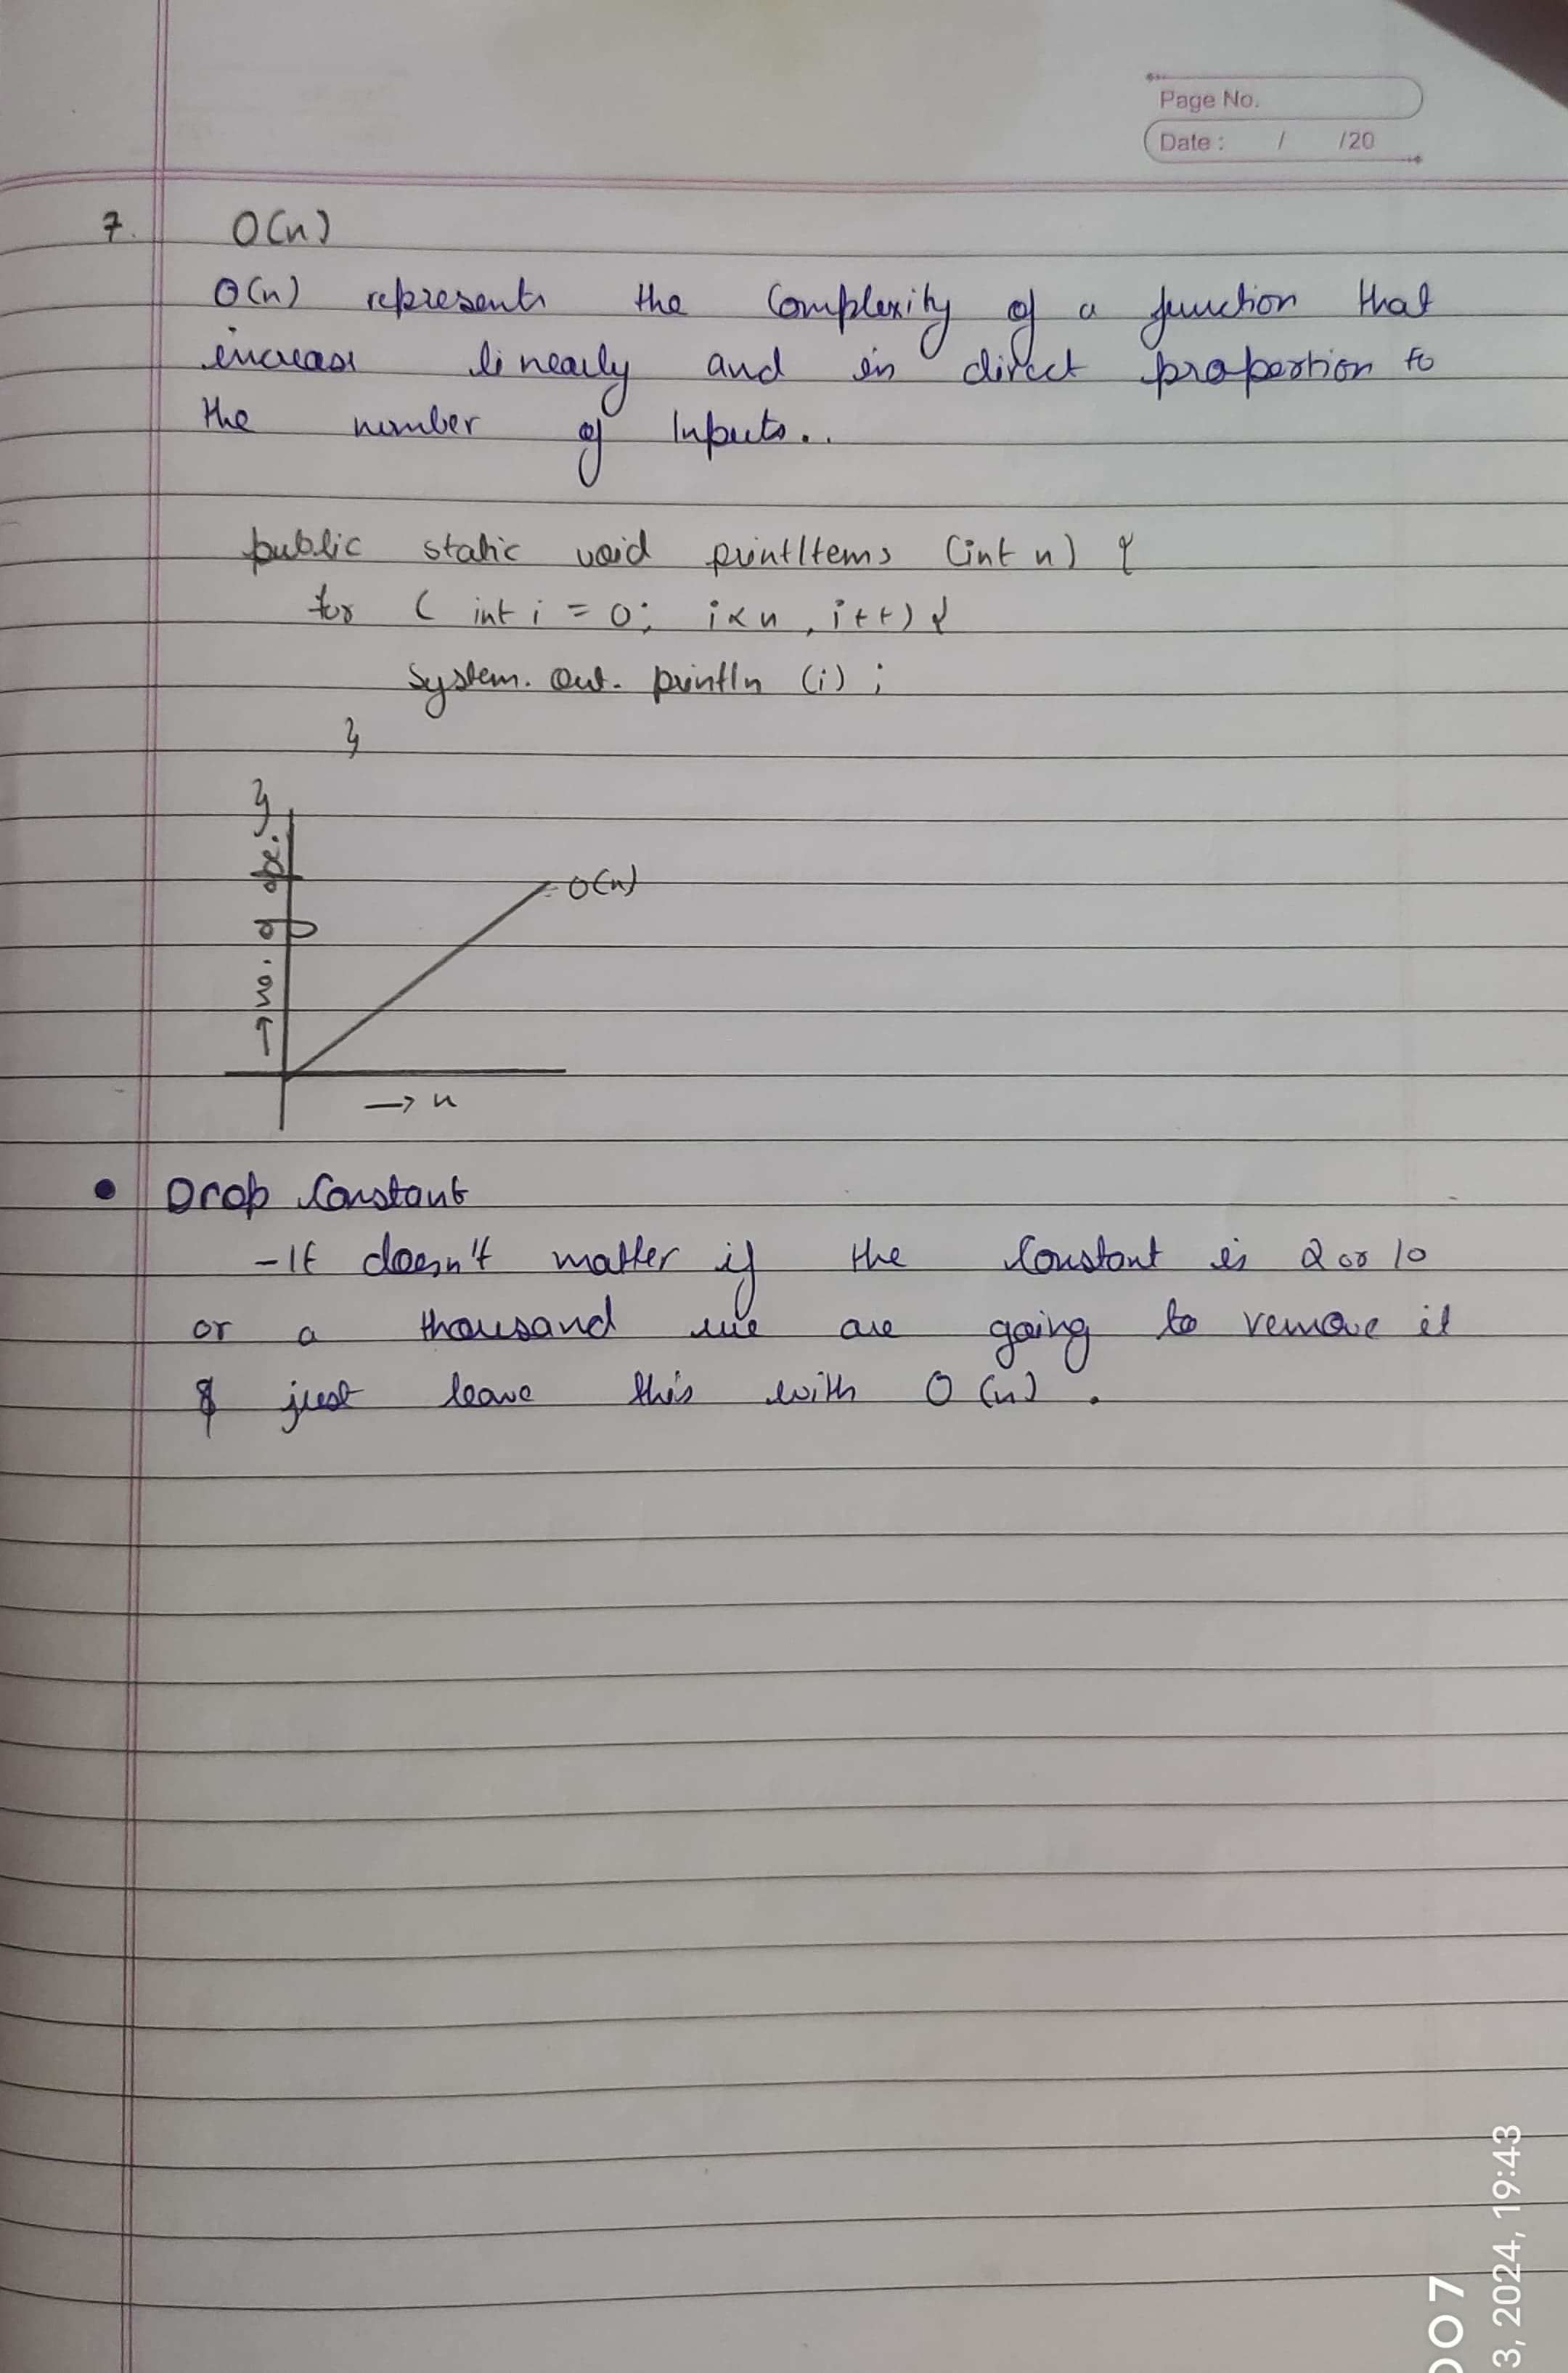 Page No.
Date : / /20
7. O(n)
O(n) represents the complexity of a function that
increase linearly and in direct proportion to
the number of Inputs..
public static void printItems (int n) {
for ( int i = 0; i<n , i++) {
System. out. println (i) ;
}
}
→ no. of
O(n)
→ n
• Drop Constant
- It doesn't matter if the constant is 2 or 10
or a thousand we are going to remove it
& just leave this with O (n) .
007
3, 2024, 19:43